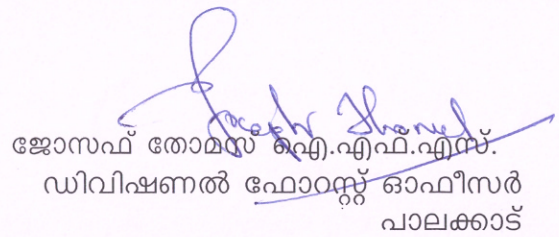 Joseph Thomas
ജോസഫ് തോമസ് ഐ.എഫ്.എസ്.
ഡിവിഷണൽ ഫോറസ്റ്റ് ഓഫീസർ
പാലക്കാട്